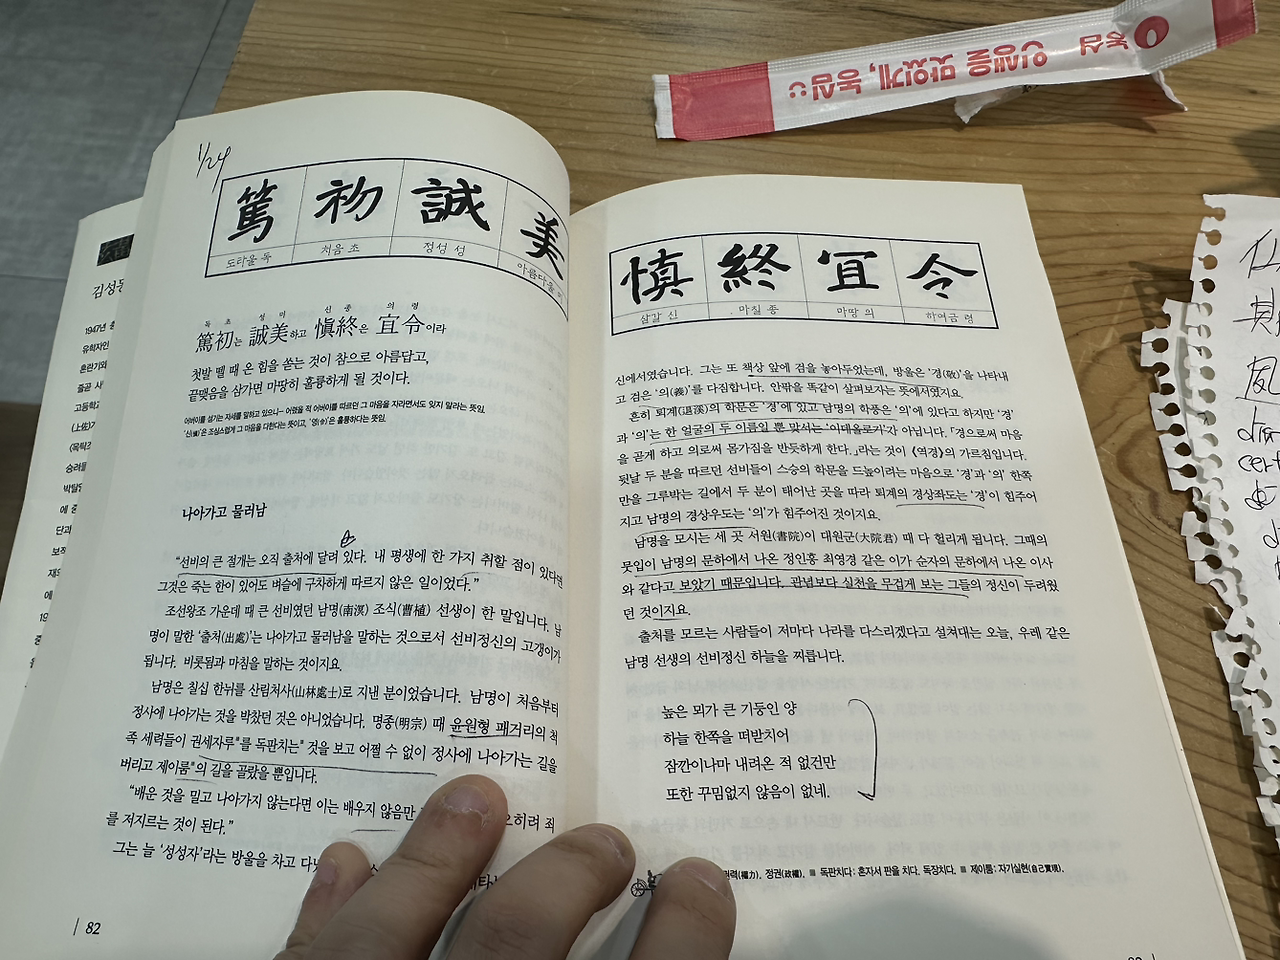 1/24
篤 初 誠 美
도타울 독 처음 초 정성 성 아름다울
독 초 성 미 신 종 의 령
篤初는 誠美하고 愼終은 宜令이라
첫발 뗄 때 온 힘을 쏟는 것이 참으로 아름답고,
끝맺음을 삼가면 마땅히 훌륭하게 될 것이다.
어버이를 섬기는 자세를 말하고 있으니— 어렸을 적 어버이를 따르던 그 마음을 자라면서도 잊지 말라는 뜻임.
'신(愼)'은 조심스럽게 그 마음을 다한다는 뜻이고, '영(令)'은 훌륭하다는 뜻임.
나아가고 물러남
"선비의 큰 절개는 오직 출처에 달려 있다. 내 평생에 한 가지 취할 점이 있다면
그것은 죽는 한이 있어도 벼슬에 구차하게 따르지 않은 일이었다."
조선왕조 가운데 때 큰 선비였던 남명(南溟) 조식(曺植) 선생이 한 말입니다. 남
명이 말한 '출처(出處)'는 나아가고 물러남을 말하는 것으로서 선비정신의 고갱이가
됩니다. 비롯됨과 마침을 말하는 것이지요.
남명은 칠십 한뉘를 산림처사(山林處士)로 지낸 분이었습니다. 남명이 처음부터
정사에 나아가는 것을 박찼던 것은 아니었습니다. 명종(明宗) 때 윤원형 패거리의 척
족 세력들이 권세자루"를 독판치는" 것을 보고 어쩔 수 없이 정사에 나아가는 길을
버리고 제이룸"의 길을 골랐을 뿐입니다.
"배운 것을 믿고 나아가지 않는다면 이는 배우지 않음만 오히려 죄
를 저지르는 것이 된다."
그는 늘 '성성자'라는 방울을 차고
82
愼 終 宜 令
삼갈 신 마칠 종 마땅 의 하여금 령
신에서였습니다. 그는 또 책상 앞에 검을 놓아두었는데, 방울은 '경(敬)'을 나타내
고 검은 '의(義)'를 다짐합니다. 안팎을 똑같이 살펴보자는 뜻에서였지요.
흔히 퇴계(退溪)의 학문은 '경'에 있고 남명의 학풍은 '의'에 있다고 하지만 '경'
과 '의'는 한 얼굴의 두 이름일 뿐 맞서는 '이데올로기'가 아닙니다. 「경으로써 마음
을 곧게 하고 의로써 몸가짐을 반듯하게 한다.」라는 것이 《역경》의 가르침입니다.
뒷날 두 분을 따르던 선비들이 스승의 학문을 드높이려는 마음으로 '경'과 '의' 한쪽
만을 그루박는 길에서 두 분이 태어난 곳을 따라 퇴계의 경상좌도는 '경'이 힘주어
지고 남명의 경상우도는 '의'가 힘주어진 것이지요.
남명을 모시는 세 곳 서원(書院)이 대원군(大院君) 때 다 헐리게 됩니다. 그때의
뭇입이 남명의 문하에서 나온 정인홍 최영경 같은 이가 순자의 문하에서 나온 이사
와 같다고 보았기 때문입니다. 관념보다 실천을 무겁게 보는 그들의 정신이 두려웠
던 것이지요.
출처를 모르는 사람들이 저마다 나라를 다스리겠다고 설쳐대는 오늘, 우레 같은
남명 선생의 선비정신 하늘을 찌릅니다.
높은 뫼가 큰 기둥인 양
하늘 한쪽을 떠받치어
잠깐이나마 내려온 적 없건만
또한 꾸밈없지 않음이 없네.
권력(權力), 정권(政權). ■ 독판치다: 혼자서 판을 치다. 독장치다. ■ 제이룸: 자기실현(自己實現).
농심 인생을 맛있게, 농심
김성동
1947년
유학자인
고등학
(上佐)
승려들